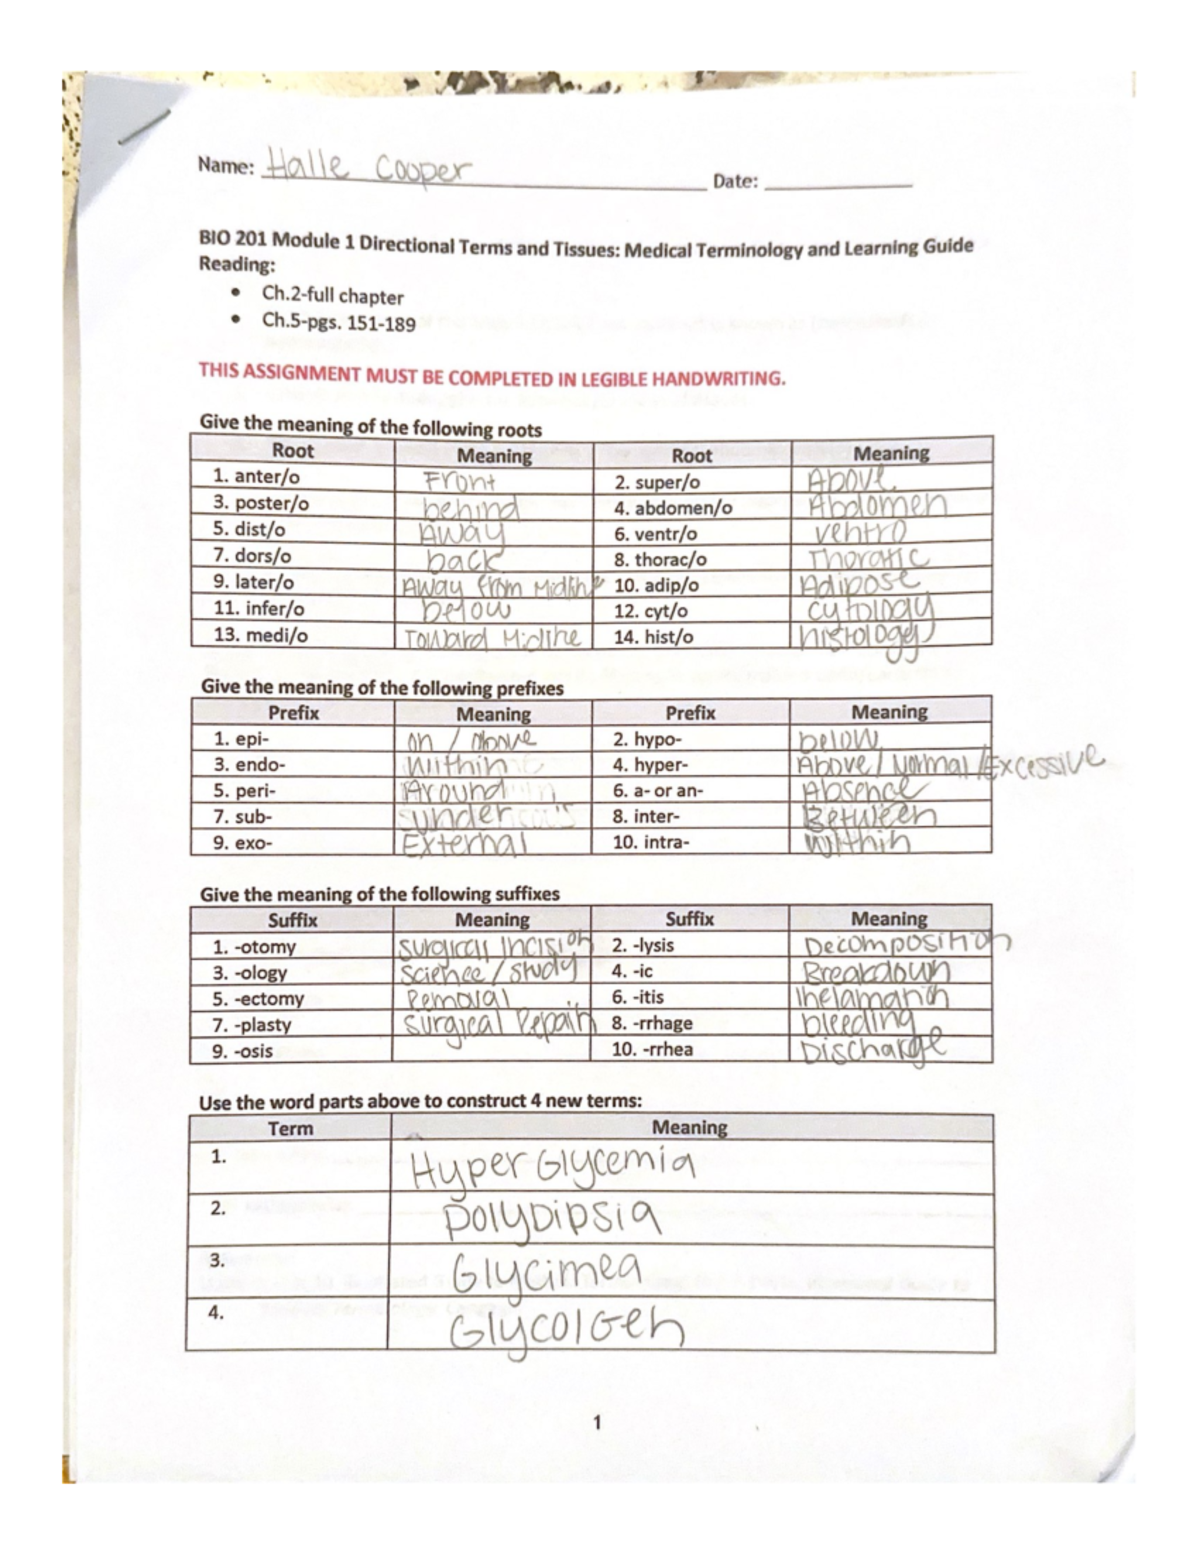 Name: Halle Cooper Date:
BIO 201 Module 1 Directional Terms and Tissues: Medical Terminology and Learning Guide
Reading:
• Ch.2-full chapter
• Ch.5-pgs. 151-189
THIS ASSIGNMENT MUST BE COMPLETED IN LEGIBLE HANDWRITING.
Give the meaning of the following roots
Root Meaning Root Meaning
1. anter/o Front 2. super/o Above
3. poster/o behind 4. abdomen/o Abdomen
5. dist/o Away 6. ventr/o ventro
7. dors/o back 8. thorac/o Thoratic
9. later/o Away from Midline 10. adip/o Adipose
11. infer/o below 12. cyt/o cytology
13. medi/o Toward Midline 14. hist/o histology
Give the meaning of the following prefixes
Prefix Meaning Prefix Meaning
1. epi- on / above 2. hypo- below
3. endo- Within 4. hyper- Above / Normal / Excessive
5. peri- Around 6. a- or an- Absence
7. sub- under 8. inter- Between
9. exo- External 10. intra- Within
Give the meaning of the following suffixes
Suffix Meaning Suffix Meaning
1. -otomy Surgical Incision 2. -lysis Decomposition
3. -ology Science / Study 4. -ic Breakdown
5. -ectomy Removal 6. -itis
7. -plasty Surgical Repair 8. -rrhage bleeding
9. -osis 10. -rrhea Discharge
Use the word parts above to construct 4 new terms:
Term Meaning
1. Hyper Glycemia
2. polyDipsia
3. Glycimea
4. GlycolGen
1